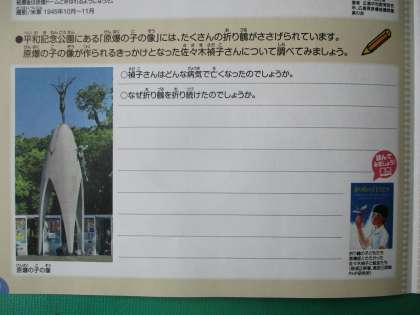 撮影/米軍 1945年10月~11月
●平和記念公園にある「原爆の子の像」には、たくさんの折り鶴がささげられています。
原爆の子の像が作られるきっかけとなった佐々木禎子さんについて調べてみましょう。
○禎子さんはどんな病気で亡くなったのでしょうか。
○なぜ折り鶴を折り続けたのでしょうか。
読んで
みましょう!
折り鶴の子どもたち
原爆の子の像